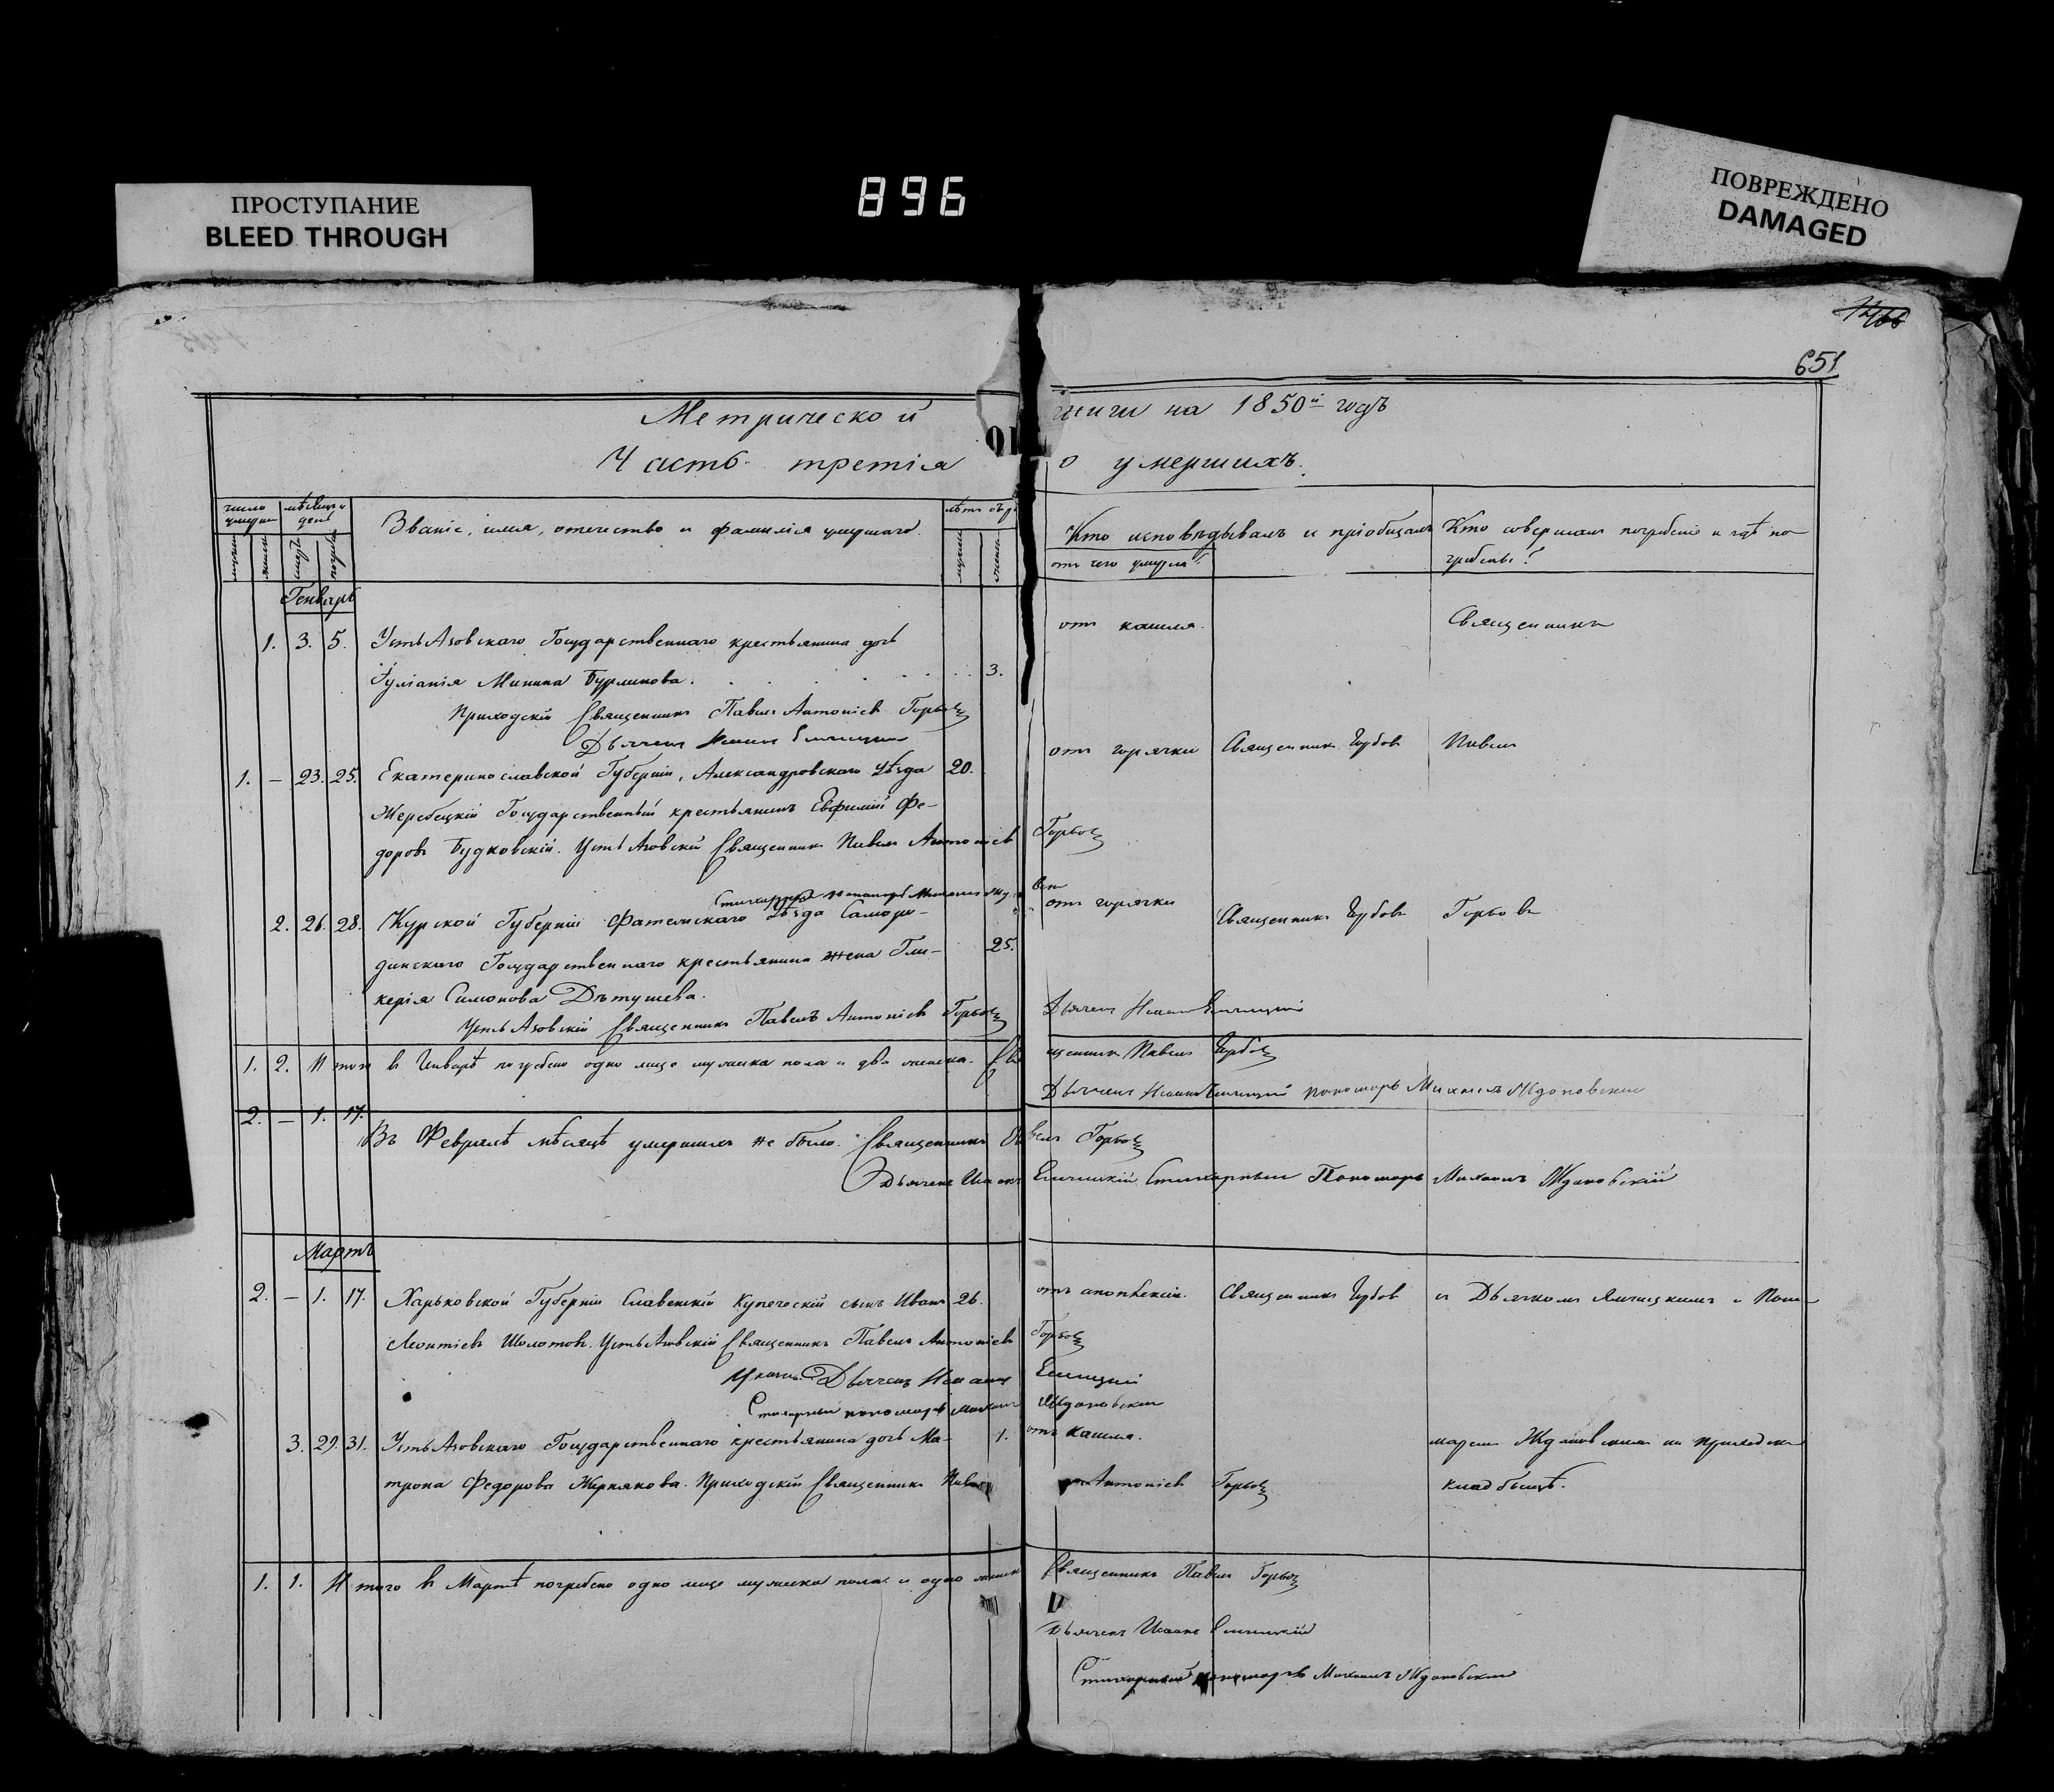 ПРОСТУПАНИЕ
BLEED THROUGH
896
ПОВРЕЖДЕНО
DAMAGED
651
Метрической книги на 1850й годъ
Часть третія о умершихъ.
Званіе, имя, отечество и фамилія умершаго.
Кто исповѣдывалъ и пріобщалъ
Кто совершалъ погребеніе и гдѣ по-
гребены?
отъ чего умеръ
Генварь
1. 3. 5. Усть Азовскаго Государственнаго крестьянина дочь
отъ кашля. Священникъ
Іуліанія Минина Бурлинова. 3.
Приходскій Священникъ Павелъ Антоніевъ Горбовъ
Дьячекъ
1. – 23. 25. Екатеринославской Губерніи, Александровскаго Уѣзда 20.
отъ горячки Священникъ Горбовъ Павелъ
Жеребецкій Государственный крестьянинъ Евфимій Фе-
доровъ Будковскій. Усть Азовскій Священникъ Павелъ Антоніевъ Горбовъ
2. 26. 28. Курской Губерніи Фатежскаго Уѣзда Саморя-
отъ горячки Священникъ Горбовъ Горбовъ
динскаго Государственнаго крестьянина жена Гли- 25.
керія Симонова Дѣтушева.
Усть Азовскій Священникъ Павелъ Антоніевъ Горбовъ
Дьячекъ Исаакъ Еличицкій
1. 2. Итого в Генварѣ погребено одно лице мужеска пола и два женска. Священникъ Павелъ Горбовъ
Дьячекъ Исаакъ Еличицкій пономарь Михаилъ Ждановскій
2. – 1. 17.
Въ Февралѣ мѣсяцѣ умершихъ не было. Священникъ Павелъ Горбовъ
Дьячекъ Исаакъ Еличицкій Стихарный Пономарь Михаилъ Ждановскій
Мартъ
2. – 1. 17. Харьковской Губерніи Славенскій Купеческій сынъ Иванъ 26.
отъ апоплексіи. Священникъ Горбовъ съ Дьячкомъ Еличицкимъ и Поно-
Леонтіевъ Шолотовъ. Усть Азовскій Священникъ Павелъ Антоніевъ Горбовъ
Дьячекъ Исаакъ Еличицкій
Стихарный пономарь Михаилъ Ждановскій
3. 29. 31. Усть Азовскаго Государственнаго крестьянина дочь Ма- 1.
отъ кашля. маремъ Ждановскимъ на приходскомъ
трона Федорова Жернякова. Приходскій Священникъ Павелъ Антоніевъ Горбовъ
кладбищѣ.
1. 1. Итого в Мартѣ погребено одно лице мужеска пола и одно женска Священникъ Павелъ Горбовъ
Дьячекъ Исаакъ Еличицкій
Стихарный пономарь Михаилъ Ждановскій